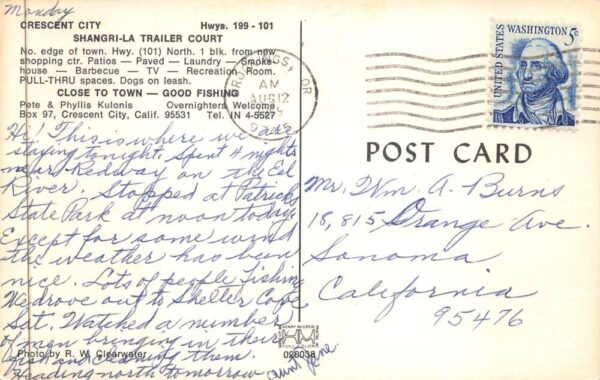 Monday
CRESCENT CITY Hwys. 199 - 101
SHANGRI-LA TRAILER COURT
No. edge of town. Hwy. (101) North. 1 blk. from new
shopping ctr. Patios — Paved — Laundry — Smoke-
house — Barbecue — TV — Recreation Room.
PULL-THRU spaces. Dogs on leash.
CLOSE TO TOWN — GOOD FISHING
Pete & Phyllis Kulonis Overnighters Welcome
Box 97, Crescent City, Calif. 95531 Tel. IN 4-5527
Hi! This is where we are
staying tonight. Spent 4 nights
near Redway on the Eel
River. Stopped at Patricks
State Park at noon today.
Except for some wind
the weather has been
nice. Lots of people fishing
We drove out to Shelter Cove
Sat. Watched a number
of men bringing in their
fish and cleaning them.
Heading north tomorrow
Aunt
Photo by R. W. Clearwater
HENRY McGREW
HM
FULL COLOR
020038
OR
AM
AUG 12
UNITED STATES WASHINGTON 5c
POST CARD
Mr. Wm A. Burns
18,815 Orange Ave.
Sonoma
California
95476